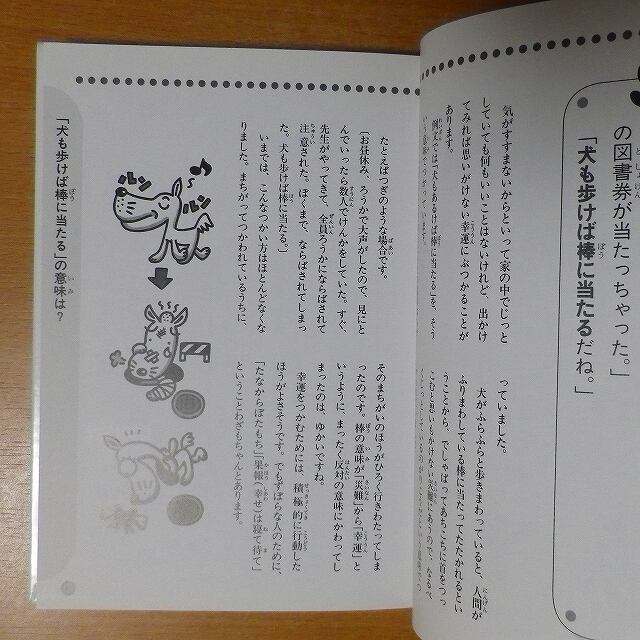 の図書券が当たっちゃった。」
「犬も歩けば棒に当たるだね。」
気がすすまないからといって家の中でじっと
していても何もいいことはないけれど、出かけ
てみれば思いがけない幸運にぶつかることが
あります。
例文では「犬もあるけば棒に当たる」を、そう
いう意味でつかっています。
っていました。
犬がふらふらと歩きまわっていると、人間が
ふりまわしている棒に当たってたたかれるとい
うことから、でしゃばってあちこちに首をつっ
こむと思いもかけない災難にあうので、なるべ
たとえばつぎのような場合です。
〔お昼休み、ろうかで大声がしたので、見にと
んでいったら数人でけんかをしていた。すぐ、
先生がやってきて、全員ろうかにならばされて
注意された。ぼくまで、ならばされてしまっ
た。犬も歩けば棒に当たる。〕
いまでは、こんなつかい方はほとんどなくな
りました。まちがってつかわれているうちに、
そのまちがいのほうがひろく行きわたってしま
ったのです。棒の意味が「災難」から「幸運」と
いうように、まったく反対の意味にかわってし
まったのは、ゆかいですね。
幸運をつかむためには、積極的に行動した
ほうがよさそうです。でもずぼらな人のために、
「たなからぼたもち」「果報(幸せ)は寝て待て」
ということわざもちゃんとあります。
ルン
ルン
「犬も歩けば棒に当たる」の意味は?